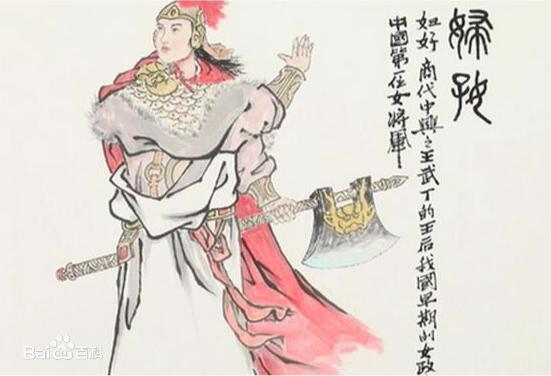 婦好
妇好 商代中興之王武丁的王后我國早期的女政
中國第一位女將軍
Baidu百科